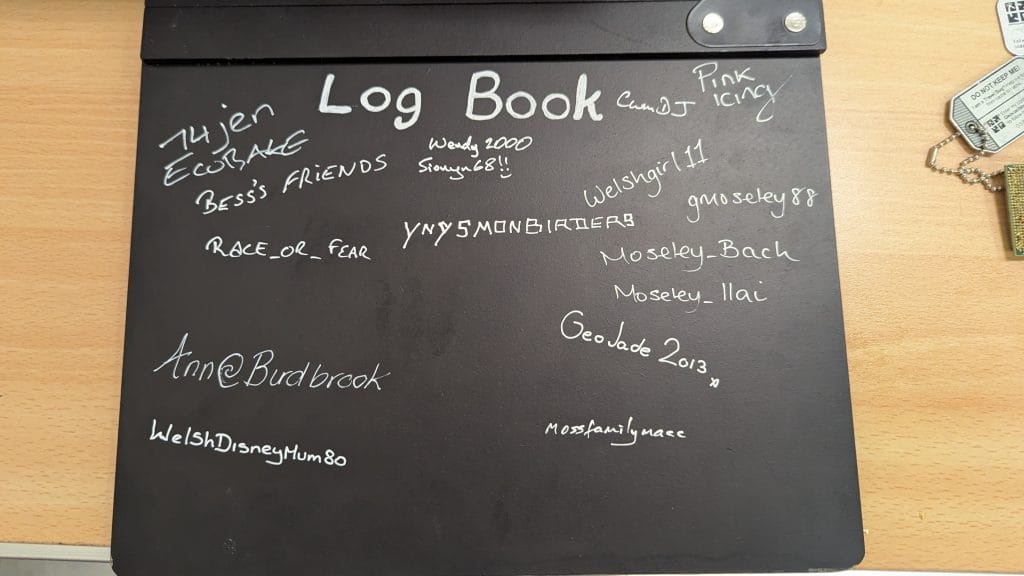 Log Book
Pink
icing
CwmDJ
14jen
EcoBAKE
BESS'S FRIENDS
Wendy 2000
Sionyn68!!
Welshgirl11
gmoseley88
YNYSMONBIRDERS
RACE_OR_FEAR
Moseley_Bach
Moseley_llai
GeoJade 2013
Ann@Burdbrook
WelshDisneyMum80
Mossfamilymacc
DO NOT KEEP ME!